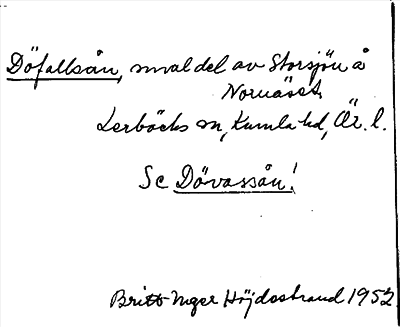 Döfallsån, smal del av Storsjön å
Noruäset.
Lerbäcks sn, Kumla hd, Är. l.
Se Dövassån!
Britt-Inger Höjdestrand 1952